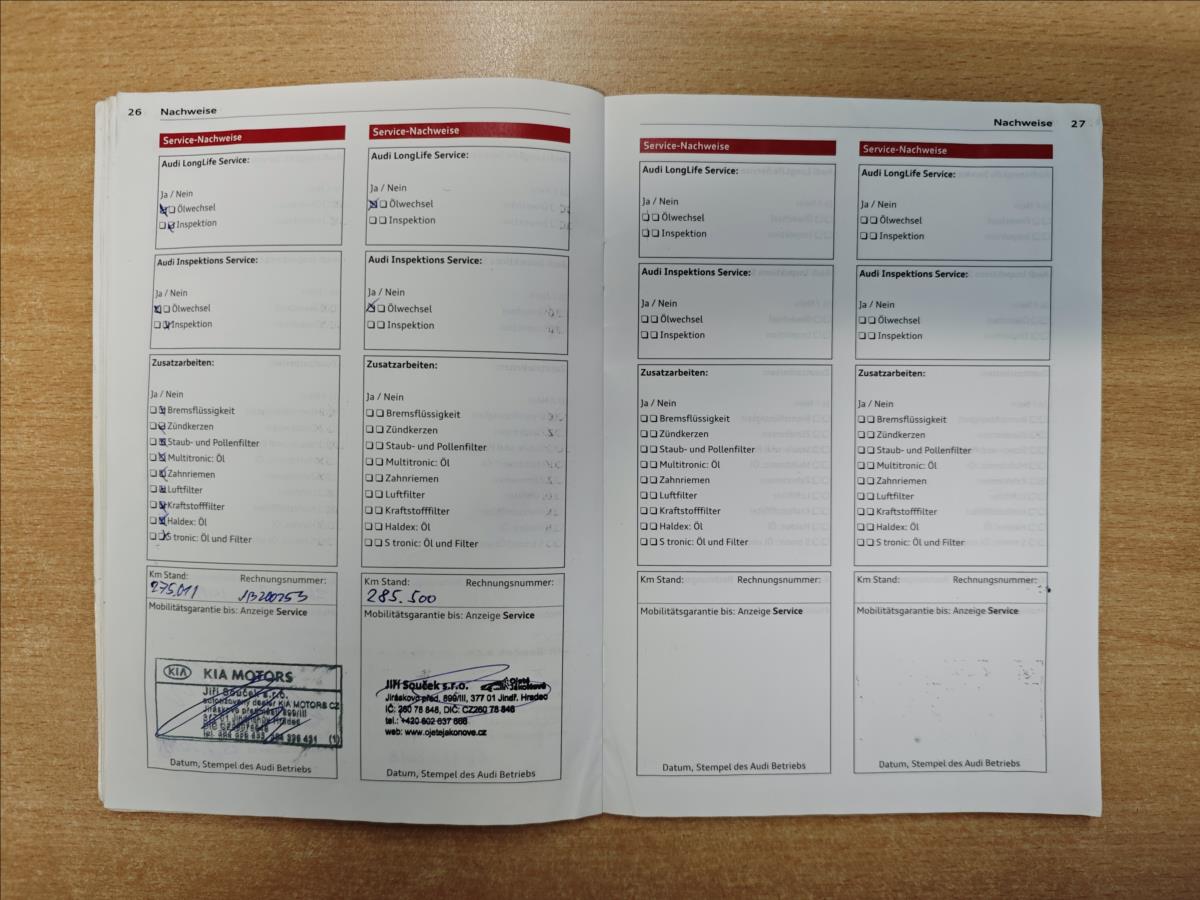 26 Nachweise
Service-Nachweise
Audi LongLife Service:
Ja / Nein
Ölwechsel
Inspektion
Audi Inspektions Service:
Ja / Nein
Ölwechsel
Inspektion
Zusatzarbeiten:
Ja / Nein
Bremsflüssigkeit
Zündkerzen
Staub- und Pollenfilter
Multitronic: Öl
Zahnriemen
Luftfilter
Kraftstofffilter
Haldex: Öl
S tronic: Öl und Filter
Km Stand: Rechnungsnummer:
275.011
Mobilitätsgarantie bis: Anzeige Service
KIA KIA MOTORS
Jiří Souček s.r.o.
autorizovaný dealer KIA MOTORS CZ
Datum, Stempel des Audi Betriebs
Service-Nachweise
Audi LongLife Service:
Ja / Nein
Ölwechsel
Inspektion
Audi Inspektions Service:
Ja / Nein
Ölwechsel
Inspektion
Zusatzarbeiten:
Ja / Nein
Bremsflüssigkeit
Zündkerzen
Staub- und Pollenfilter
Multitronic: Öl
Zahnriemen
Luftfilter
Kraftstofffilter
Haldex: Öl
S tronic: Öl und Filter
Km Stand: Rechnungsnummer:
285.500
Mobilitätsgarantie bis: Anzeige Service
Jiří Souček s.r.o. Ojeté Jakonové
Jiráskovo před. 899/III, 377 01 Jindř. Hradec
IČ: 260 78 848, DIČ: CZ260 78 848
tel.: +420 602 637 868
web: www.ojetejakonove.cz
Datum, Stempel des Audi Betriebs
Nachweise 27
Service-Nachweise
Audi LongLife Service:
Ja / Nein
Ölwechsel
Inspektion
Audi Inspektions Service:
Ja / Nein
Ölwechsel
Inspektion
Zusatzarbeiten:
Ja / Nein
Bremsflüssigkeit
Zündkerzen
Staub- und Pollenfilter
Multitronic: Öl
Zahnriemen
Luftfilter
Kraftstofffilter
Haldex: Öl
S tronic: Öl und Filter
Km Stand: Rechnungsnummer:
Mobilitätsgarantie bis: Anzeige Service
Datum, Stempel des Audi Betriebs
Service-Nachweise
Audi LongLife Service:
Ja / Nein
Ölwechsel
Inspektion
Audi Inspektions Service:
Ja / Nein
Ölwechsel
Inspektion
Zusatzarbeiten:
Ja / Nein
Bremsflüssigkeit
Zündkerzen
Staub- und Pollenfilter
Multitronic: Öl
Zahnriemen
Luftfilter
Kraftstofffilter
Haldex: Öl
S tronic: Öl und Filter
Km Stand: Rechnungsnummer:
Mobilitätsgarantie bis: Anzeige Service
Datum, Stempel des Audi Betriebs